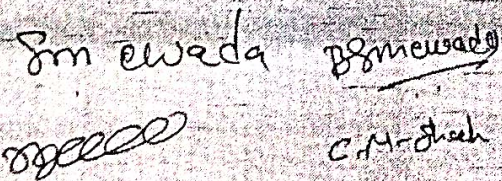 Sm ewada BSmewada
C.M-Shah